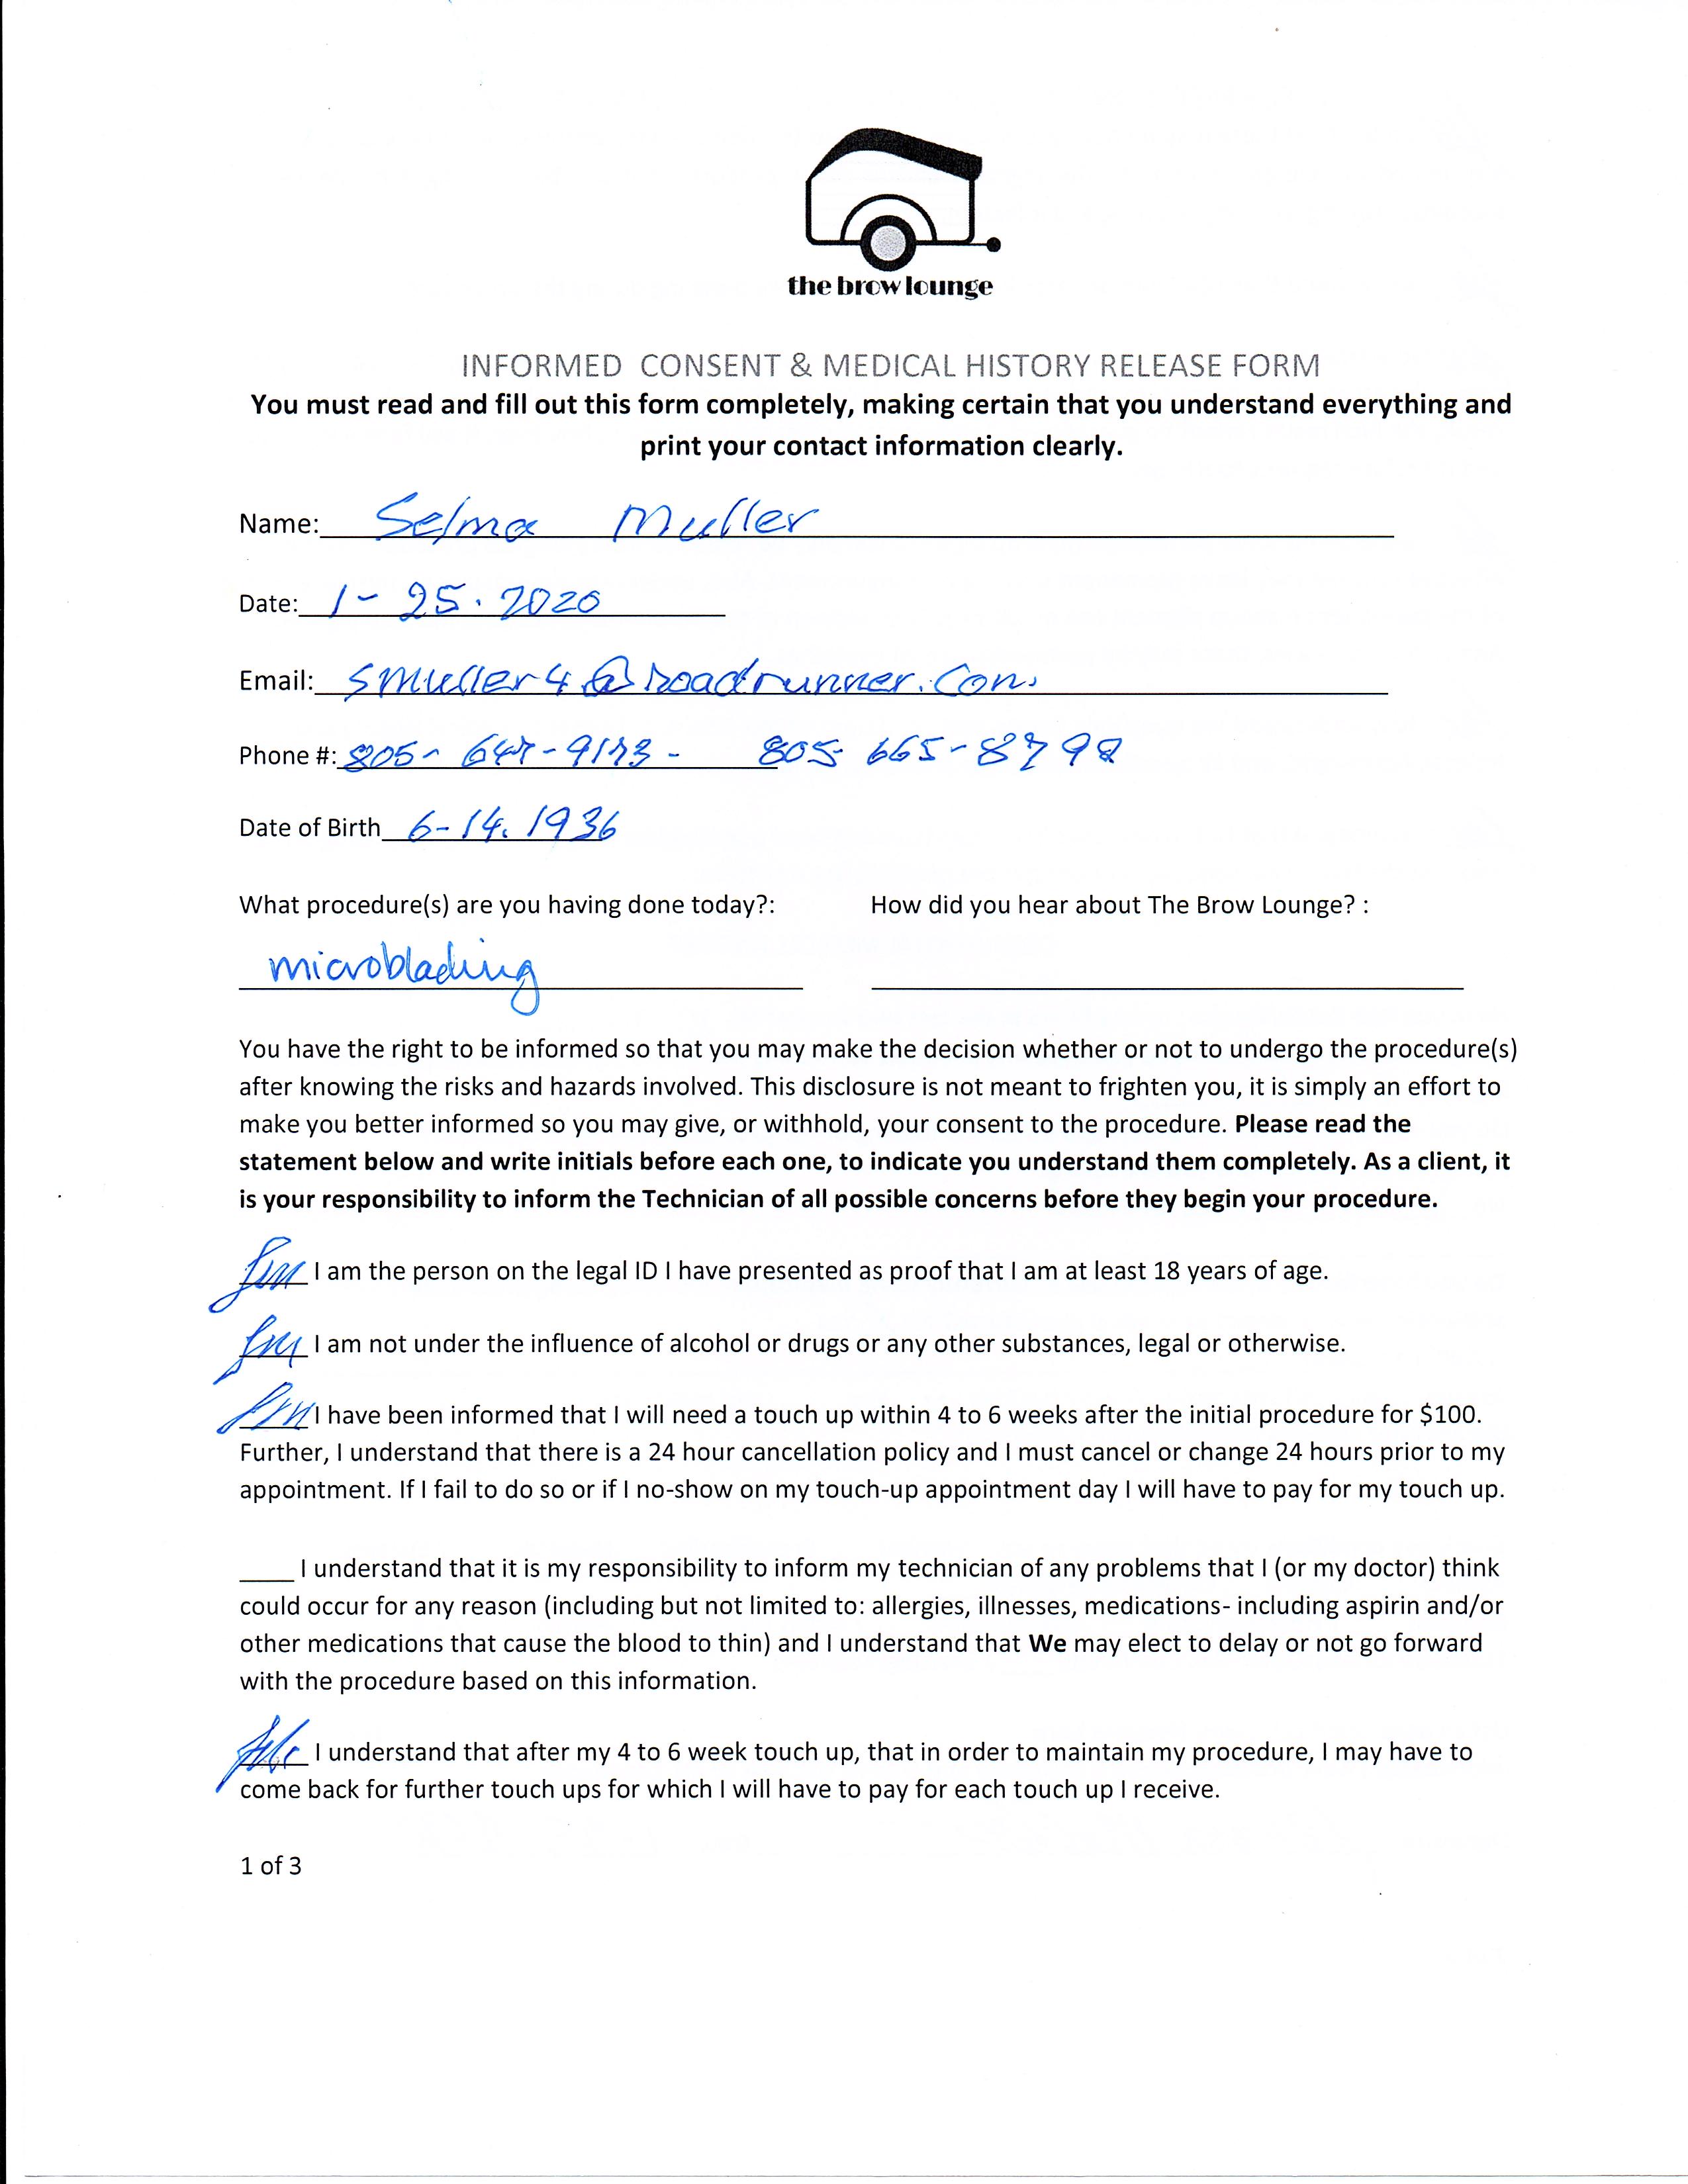 the brow lounge
INFORMED CONSENT & MEDICAL HISTORY RELEASE FORM
You must read and fill out this form completely, making certain that you understand everything and
print your contact information clearly.
Name: Selma Muller
Date: 1-25.2020
Email: smuller4@roadrunner.com
Phone #: 805- - 805 665-8798
Date of Birth 6-14.1936
What procedure(s) are you having done today?: How did you hear about The Brow Lounge? :
microblading
You have the right to be informed so that you may make the decision whether or not to undergo the procedure(s)
after knowing the risks and hazards involved. This disclosure is not meant to frighten you, it is simply an effort to
make you better informed so you may give, or withhold, your consent to the procedure. Please read the
statement below and write initials before each one, to indicate you understand them completely. As a client, it
is your responsibility to inform the Technician of all possible concerns before they begin your procedure.
I am the person on the legal ID I have presented as proof that I am at least 18 years of age.
I am not under the influence of alcohol or drugs or any other substances, legal or otherwise.
I have been informed that I will need a touch up within 4 to 6 weeks after the initial procedure for $100.
Further, I understand that there is a 24 hour cancellation policy and I must cancel or change 24 hours prior to my
appointment. If I fail to do so or if I no-show on my touch-up appointment day I will have to pay for my touch up.
____ I understand that it is my responsibility to inform my technician of any problems that I (or my doctor) think
could occur for any reason (including but not limited to: allergies, illnesses, medications- including aspirin and/or
other medications that cause the blood to thin) and I understand that We may elect to delay or not go forward
with the procedure based on this information.
I understand that after my 4 to 6 week touch up, that in order to maintain my procedure, I may have to
come back for further touch ups for which I will have to pay for each touch up I receive.
1 of 3